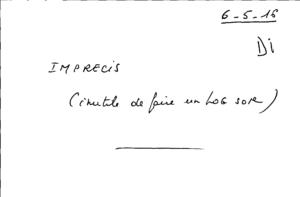 6-5-16
Di
IMPRECIS
(inutile de faire un LOG SOR)